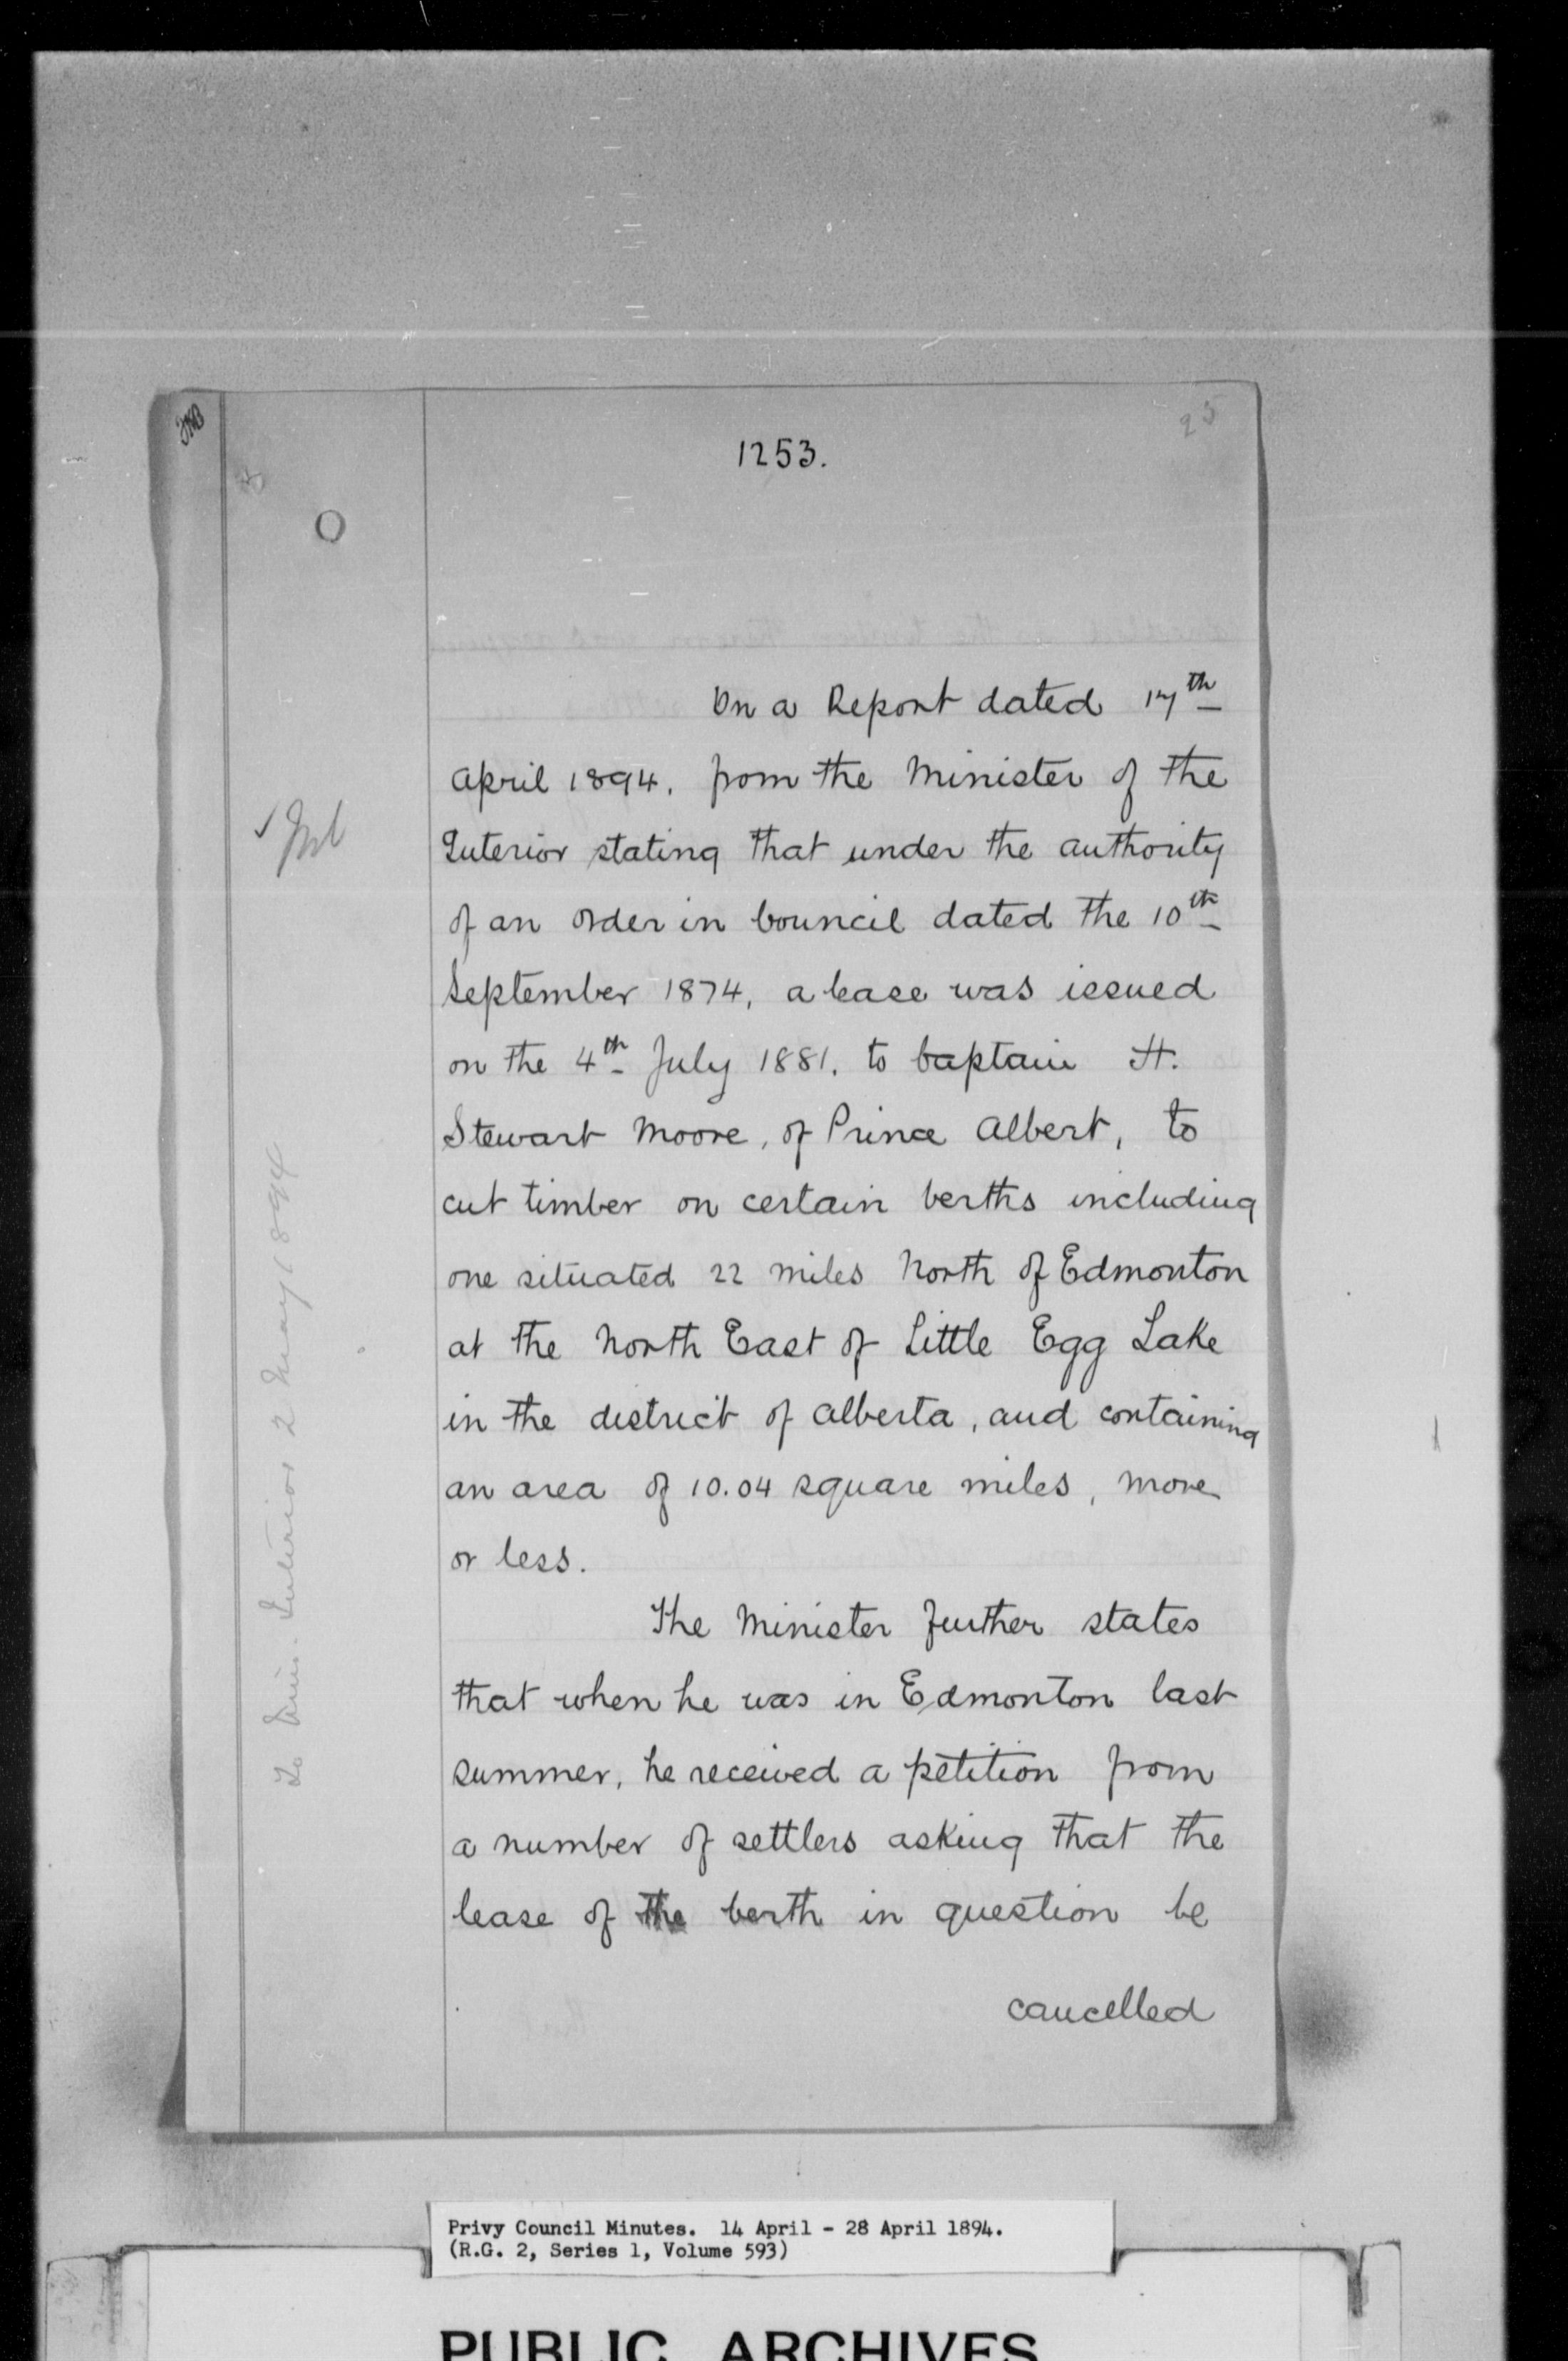 25
1253.
On a Report dated 17th
April 1894, from the Minister of the
Interior stating that under the authority
of an Order in Council dated the 10th
September 1874, a lease was issued
on the 4th July 1881, to Captain H.
Stewart Moore, of Prince Albert, to
cut timber on certain berths including
one situated 22 miles North of Edmonton
at the North East of Little Egg Lake
in the district of Alberta, and containing
an area of 10.04 square miles, more
or less.
The Minister further states
that when he was in Edmonton last
summer, he received a petition from
a number of settlers asking that the
lease of the berth in question be
cancelled
Interior 2 May 1894
Privy Council Minutes. 14 April - 28 April 1894.
(R.G. 2, Series 1, Volume 593)
PUBLIC ARCHIVES